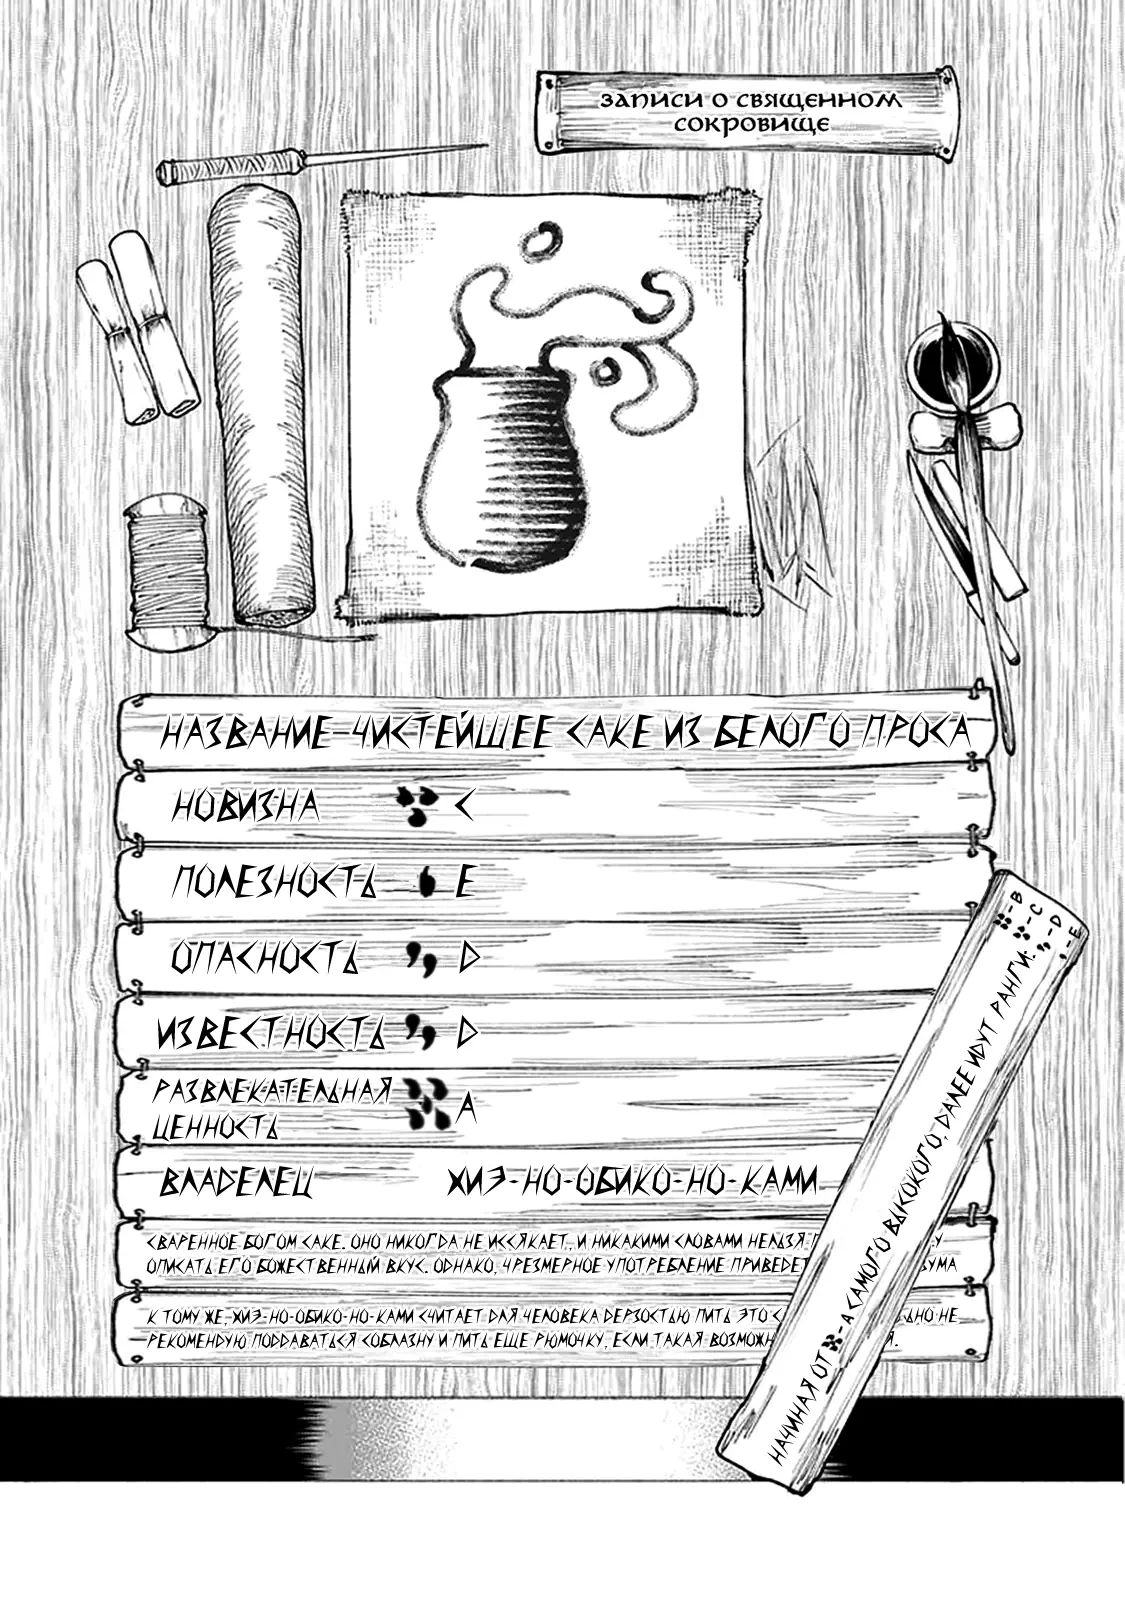 ЗАПИСИ О СВЯЩЕННОМ
СОКРОВИЩЕ
НАЗВАНИЕ-ЧИСТЕЙШЕЕ САКЕ ИЗ БЕЛОГО ПРОСА
НОВИЗНА C
ПОЛЕЗНОСТЬ E
ОПАСНОСТЬ D
ИЗВЕСТНОСТЬ D
РАЗВЛЕКАТЕЛЬНАЯ
ЦЕННОСТЬ A
ВЛАДЕЛЕЦ ХИЭ-НО-ОБИКО-НО-КАМИ
СВАРЕННОЕ БОГОМ САКЕ. ОНО НИКОГДА НЕ ИССЯКАЕТ, И НИКАКИМИ СЛОВАМИ НЕЛЬЗЯ
ОПИСАТЬ ЕГО БОЖЕСТВЕННЫЙ ВКУС. ОДНАКО, ЧРЕЗМЕРНОЕ УПОТРЕБЛЕНИЕ ПРИВЕДЕТ
К ТОМУ ЖЕ, ХИЭ-НО-ОБИКО-НО-КАМИ СЧИТАЕТ ДЛЯ ЧЕЛОВЕКА ДЕРЗОСТЬЮ ПИТЬ ЭТО НЕ
РЕКОМЕНДУЮ ПОДДАВАТЬСЯ СОБЛАЗНУ И ПИТЬ ЕЩЕ РЮМОЧКУ, ЕСЛИ ТАКАЯ
НАЧИНАЯ ОТ -A САМОГО ВЫСОКОГО, ДАЛЕЕ ИДУТ РАНГИ:
-B
-C
-D
-E